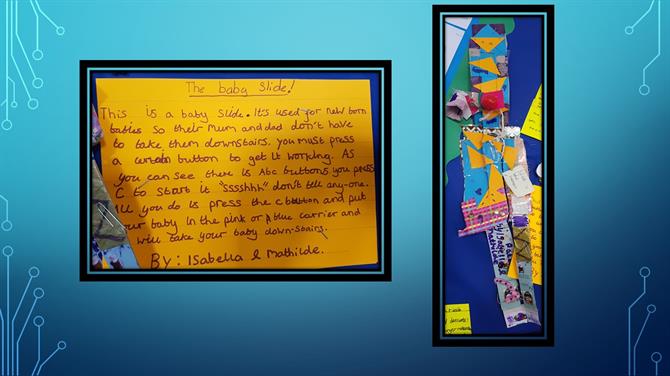 The baby slide!
This is a baby slide. It's used for new born
babies so their mum and dad don't have
to take them downstairs. you must press
a certain button to get it working. As
you can see there is Abc buttons you press
C to start it "sssshhh" don't tell any-one.
All you do is press the c button and put
your baby in the pink or blue carrier and
will take your baby down-stairs.
By: Isabella & Mathilde.